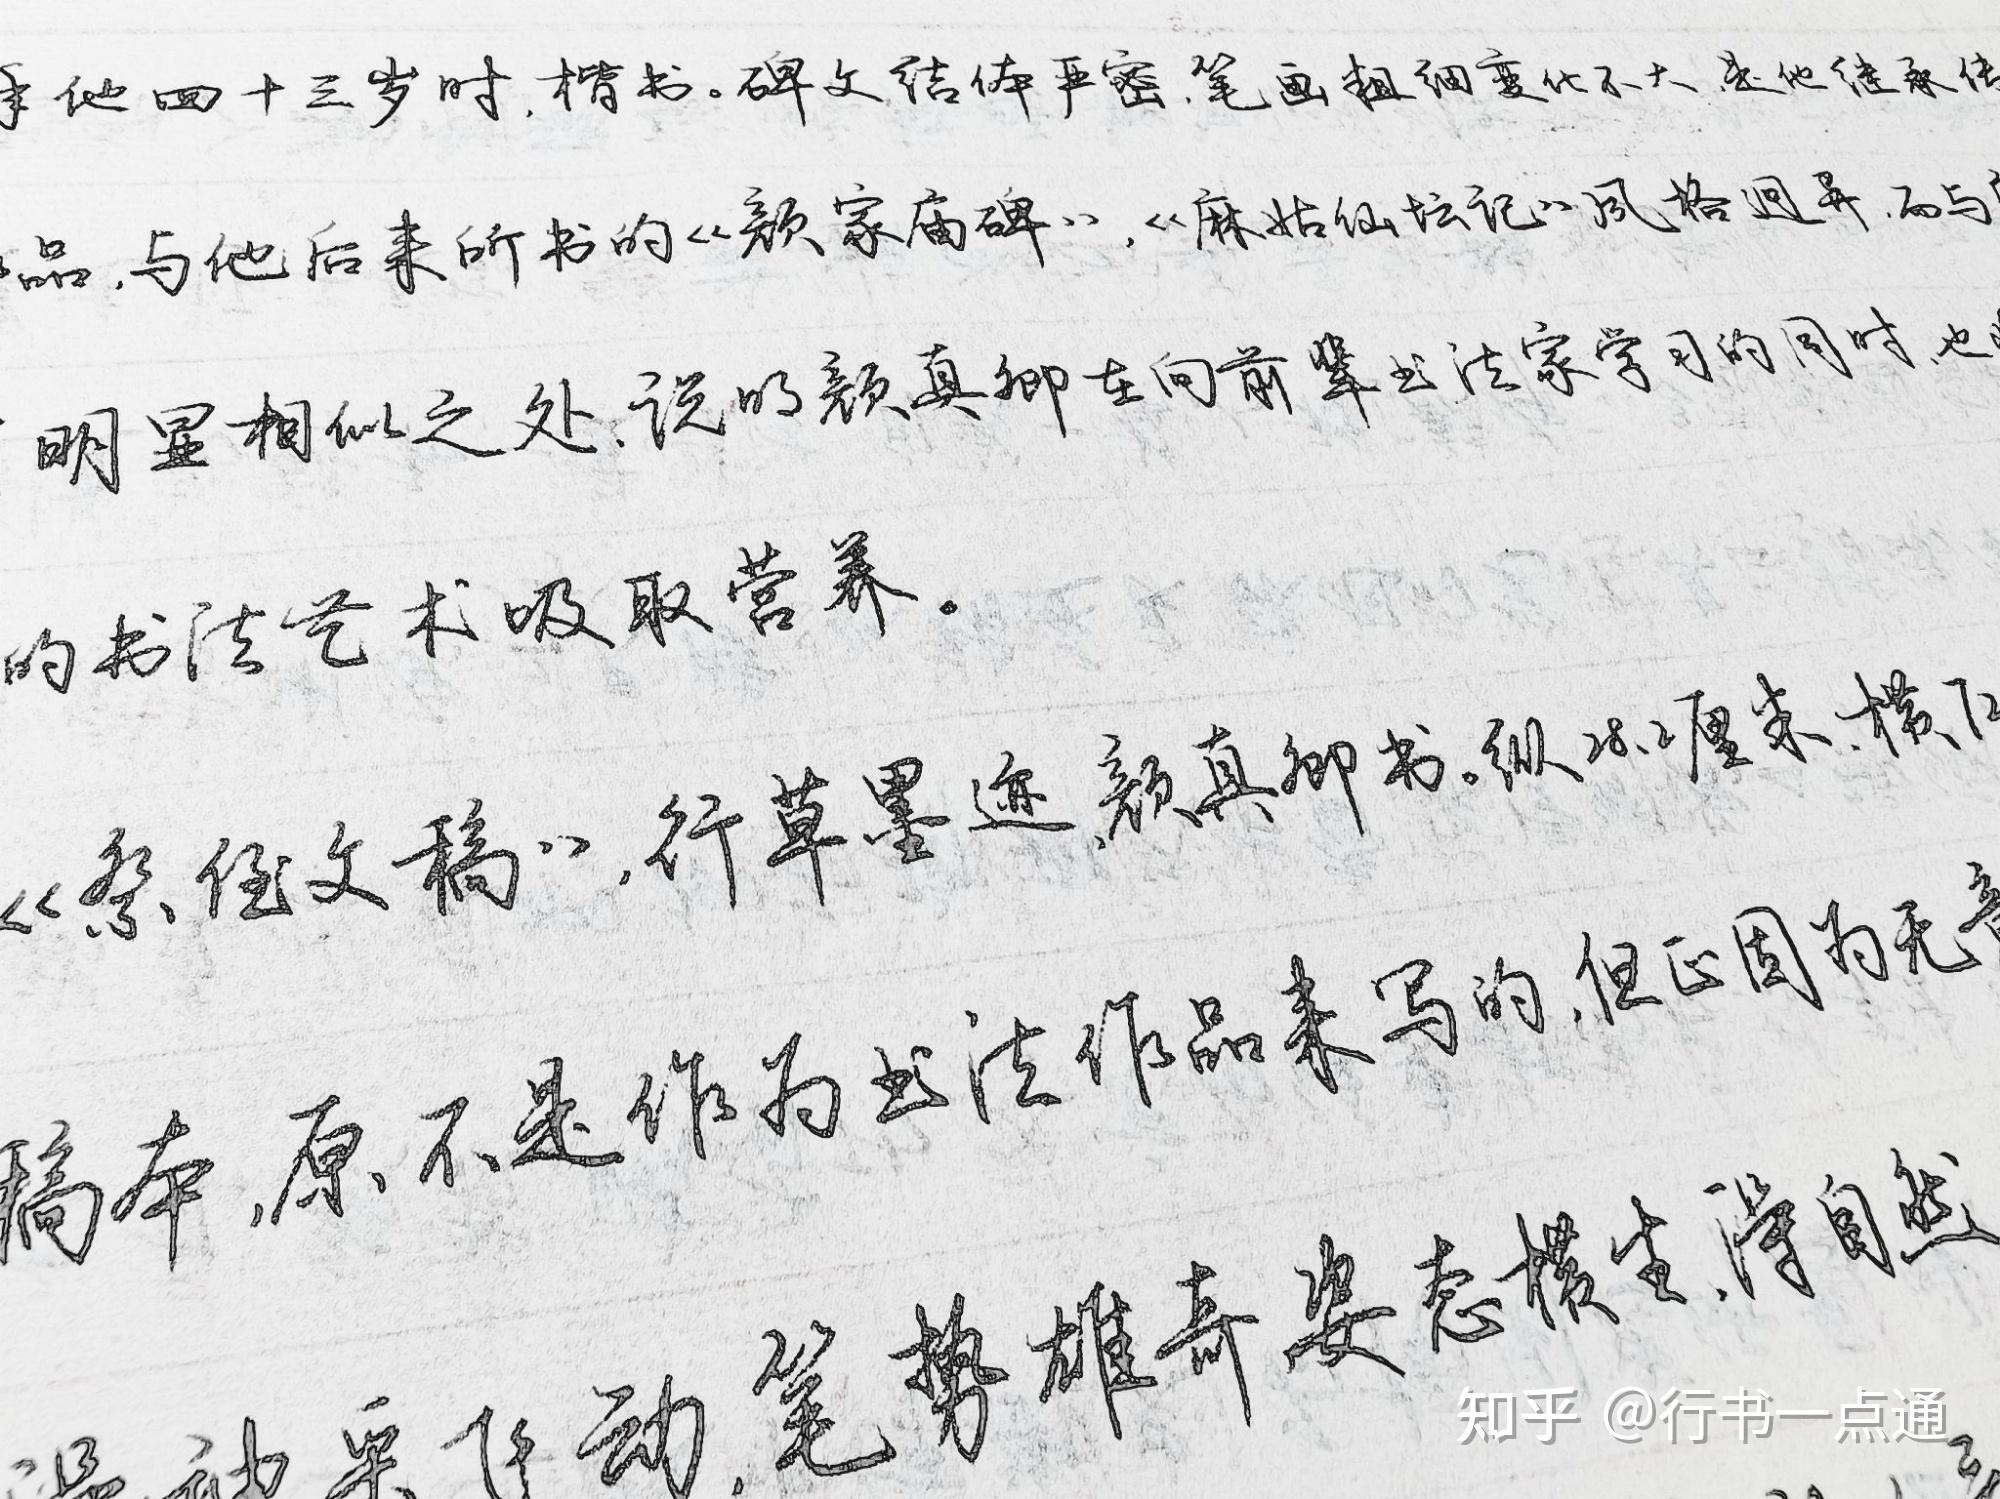 他四十三岁时，楷书。碑文结体严密，笔画粗细变化不大，是他继承传
品，与他后来所书的《颜家庙碑》，《麻姑仙坛记》风格迥异，而与
明显相似之处，说明颜真卿在向前辈书法家学习的同时，也
的书法艺术吸取营养。
《祭侄文稿》，行草墨迹，颜真卿书。纵28.2厘米，横72
稿本，原不是作为书法作品来写的，但正因为无意
神采飞动，笔势雄奇，姿态横生，得自然
知乎 @行书一点通